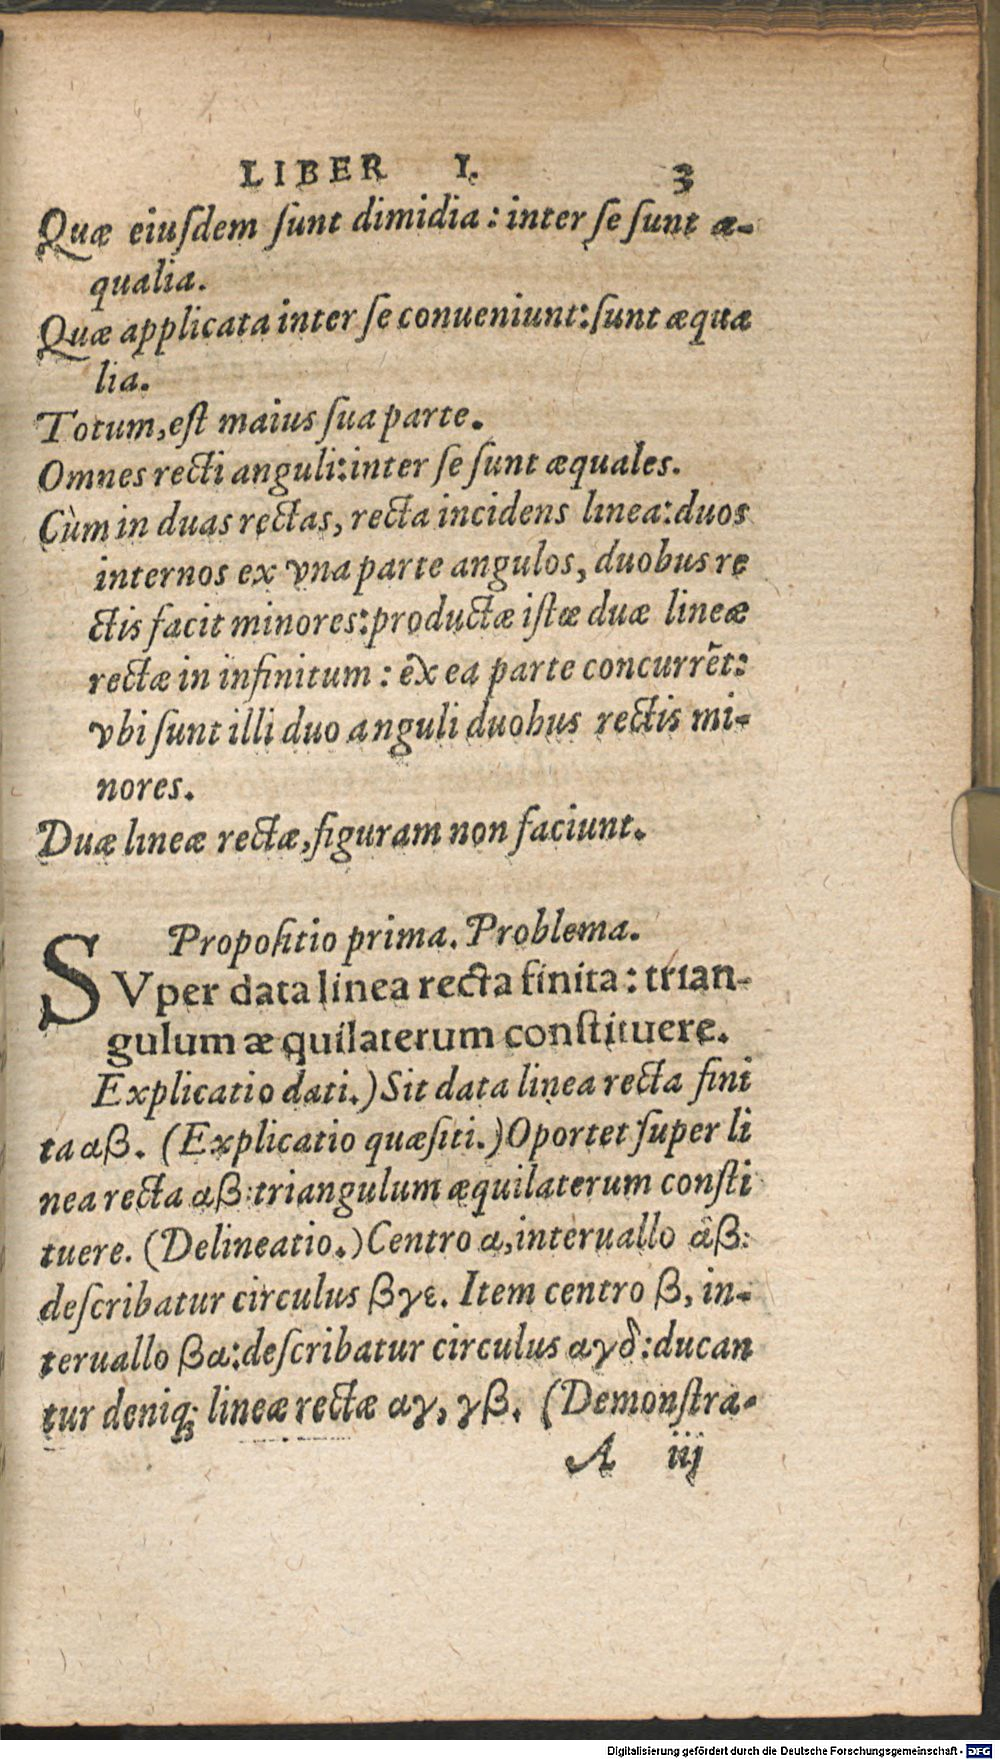 LIBER I. 3
Quæ eiuſdem ſunt dimidia: inter ſe ſunt æ-
qualia.
Quæ applicata inter ſe conueniunt: ſunt æqua
lia.
Totum, eſt maius ſua parte.
Omnes recti anguli: inter ſe ſunt æquales.
Cùm in duas rectas, recta incidens linea: duos
internos ex vna parte angulos, duobus re
ctis facit minores: productæ iſtæ duæ lineæ
rectæ in infinitum: ex ea parte concurrẽt:
vbi ſunt illi duo anguli duobus rectis mi-
nores.
Duæ lineæ rectæ, figuram non faciunt.
Propoſitio prima. Problema.
SVper data linea recta finita: trian-
gulum æquilaterum conſtituere.
Explicatio dati.) Sit data linea recta fini
ta αβ. (Explicatio quæſiti.) Oportet ſuper li
nea recta αβ: triangulum æquilaterum conſti
tuere. (Delineatio.) Centro α, interuallo αβ:
deſcribatur circulus βγε. Item centro β, in-
teruallo βα: deſcribatur circulus αγδ: ducan
tur deniq; lineæ rectæ αγ, γβ. (Demonſtra-
A iij
Digitalisierung gefördert durch die Deutsche Forschungsgemeinschaft - DFG